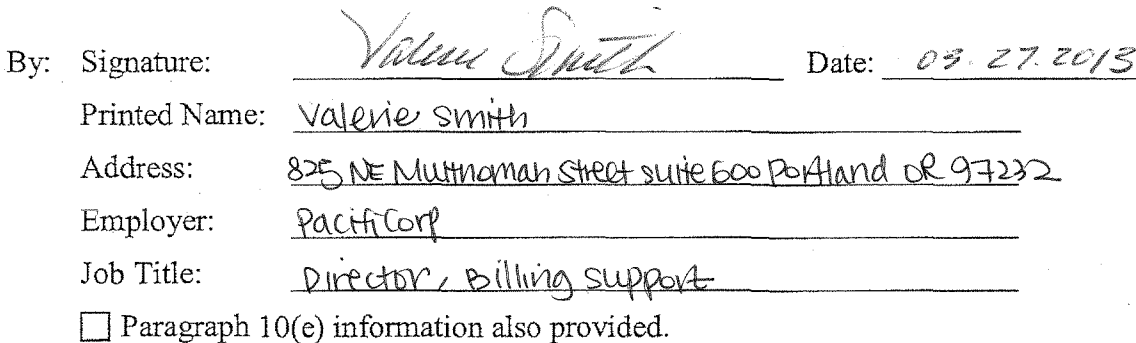 By: Signature: Valerie Smith Date: 03.27.2013
Printed Name: Valerie Smith
Address: 825 NE Multnomah Street suite 600 Portland OR 97232
Employer: PacifiCorp
Job Title: Director, Billing support
☐ Paragraph 10(e) information also provided.